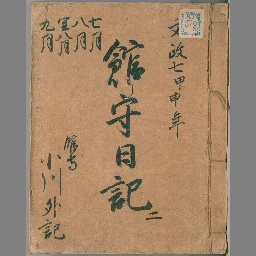 文政七甲申年
館守日記
二
七月
八月
閏八月
九月
館守
小川外記